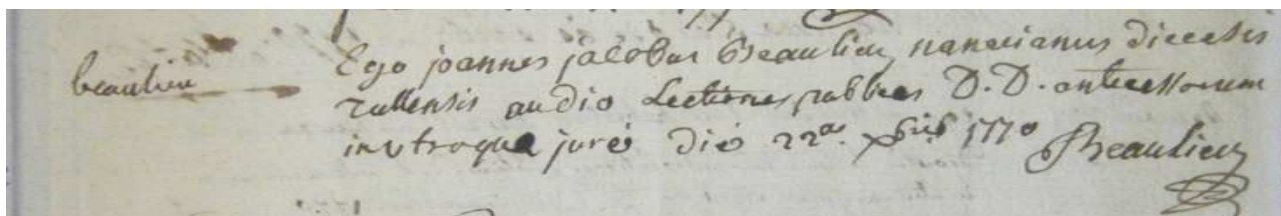 beaulieu
Ego joannes jacobus Beaulieu nanceianus diecesis
tullensis audio Lectiones publicas D.D. antecessorum
in utroque jure die 22a. xbris 1770 Beaulieu